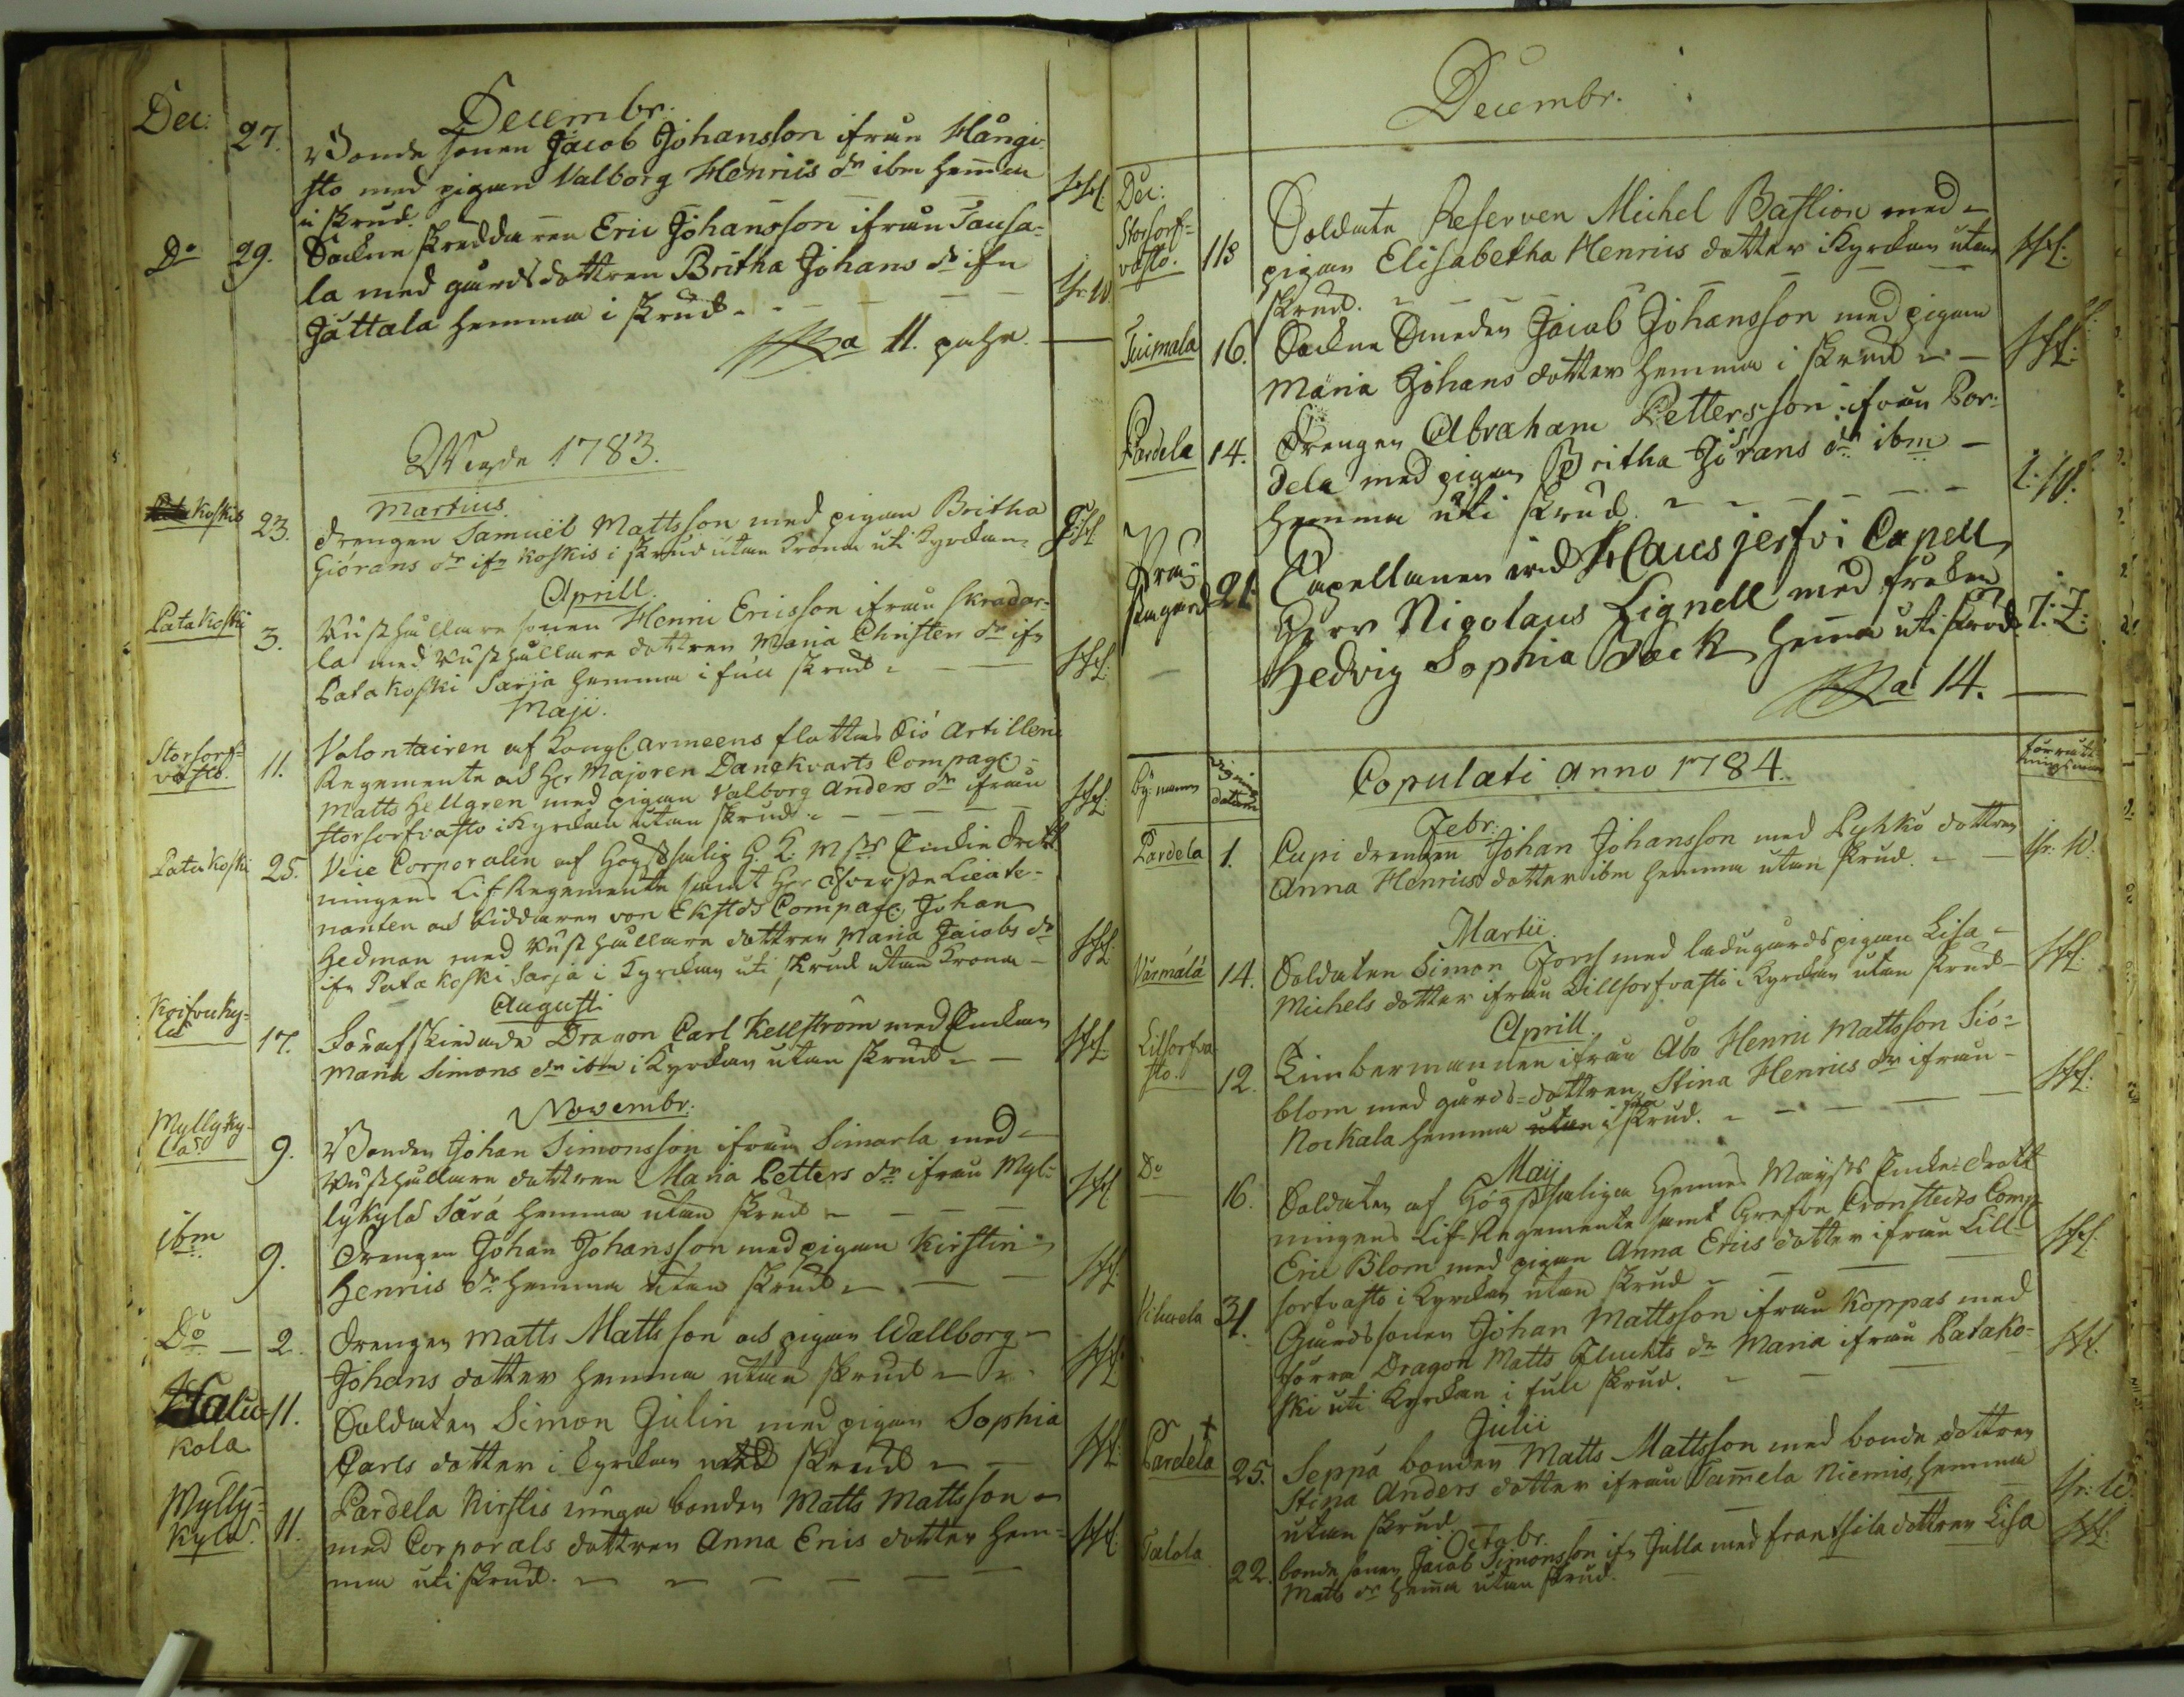 Decembr.
Dec: 27. Bonde sonen Jacob Johansson ifrån Hångi-
sto med pigan Valborg Henrics dr ibm hemma
i skrud.
Do 29. Sockne skreddaren Eric Johansson ifrån Tausa-
la med gårdsdottren Britha Johans dr ifn
Jättala hemma i skrud
Sa 11. pahr.
Wigde 1783.
Martius.
Koskis 23. drengen Samuel Mattsson med pigan Britha
Giörans dr ifn Koskis i skrud utan Krona uti Kyrckan
Aprill.
Patakoski 3. Rusthållare sonen Henric Ericsson ifrån skradar-
la med Rusthållare dottren Maria Christer dr ifn
Patakoski Sarja hemma i full skrud
Maji.
Storsorf-
vasto. 11. Volontairen af Kongl. armeens flottas Siö Artilleri
Regemente och Hr Majoren Danckvarts Compagl.
Matts Hellgren med pigan Valborg Anders dr ifrån
storsorfvasto i Kyrckan utan skrud
Patakoski 25. Vice Corporalen af Högstsalig H. K. Msts Enckie Drott
ningens Lif Regemente samt Hr öfverste Lieute-
nanten och Riddaren von Eksteds Compagl. Johan
Hedman med Rusthållare dottren Maria Jacobs dr
ifn Patakoski Sarja i Kyrckan uti skrud utan Krona
Augusti
Koifvuky-
lä 17. För afskiedade Dragon Carl Kellström med Enckan
Maria Simons dr ibm i Kyrckan utan skrud
Novembr.
Myllyky-
lä 9. Bonden Johan Simonsson ifrån Simarla med
Rusthållare dottren Maria Petters dr ifrån Myl-
lykylä Särä hemma utan skrud
ibm 9. Drengen Johan Johansson med pigan Kirstin
Henrics dr hemma utan skrud
Do 2. drengen Matts Mattsson och pigan Wallborg
Johans dotter hemma utan skrud
Halu-
kola 11. Soldaten Simon Julin med pigan Sophia
Carls dotter i Kyrckan med skrud
Mylly-
kylä. 11. Pardela Nirstis unga bonden Matts Mattsson
med Corporals dottren Anna Erics dotter hem-
ma uti skrud.
Decembr.
Dec:
Storsorf-
vasto. Soldate Reserven Michel Bastion med
pigan Elisabetha Henrics dotter i Kyrckan utan
skrud.
Tuimala 16. Sockne Smeden Jacob Johansson med pigan
Maria Johans dotter hemma i skrud
Pardela 14. Drengen Abraham Pettersson ifrån Par-
dela med pigan Britha Jörans dr ibm
hemma uti skrud.
Präs
stagård 21. Capellanen vid Hausjerfvi Capell
Herr Nicolaus Lignell med fröken
Hedvig Sophia Bock hemma uti skrud
Sa 14.
By: namn Vigning datum Copulati Anno 1784.
Febr.
Pardela 1. Cupi drengen Johan Johansson med Lyhkö dottren
Anna Henrics dotter ibm hemma utan skrud.
Martii.
Värmälä 14. Soldaten Simon Forss med ladugårds pigan Lisa
Michels dotter ifrån Lillsorfvasto i Kyrckan utan skrud
Aprill.
Lillsorfva
sto. 12. Timbermannen ifrån Åbo Henric Mattsson Siö-
blom med gårds-dottren Stina Henrics dr ifrån
Nockala hemma utan i skrud.
Maij
Do 16. Soldaten af Högstsaliga Hennes Maijsts Encke-drott
ningens Lif-Regemente samt Grefve Cronstedts Comp
Eric Blom med pigan Anna Erics dotter ifrån Lill
sorfvasto i Kyrckan utan skrud
31. Gårdssonen Johan Mattsson ifrån Koppas med
förra Dragon Matts Fluchts dr Maria ifrån Patako-
ski uti Kyrckan i full skrud.
Julii
Pardela 25. Seppä bonden Matts Mattsson med bonde dottren
Stina Anders dotter ifrån Tammela Niemis, hemma
utan skrud.
Octobr.
Talola 22. bonde sonen Jacob Simonsson ifn Jullo med frantsila dottren Lisa
Matts dr hemma utan skrud.